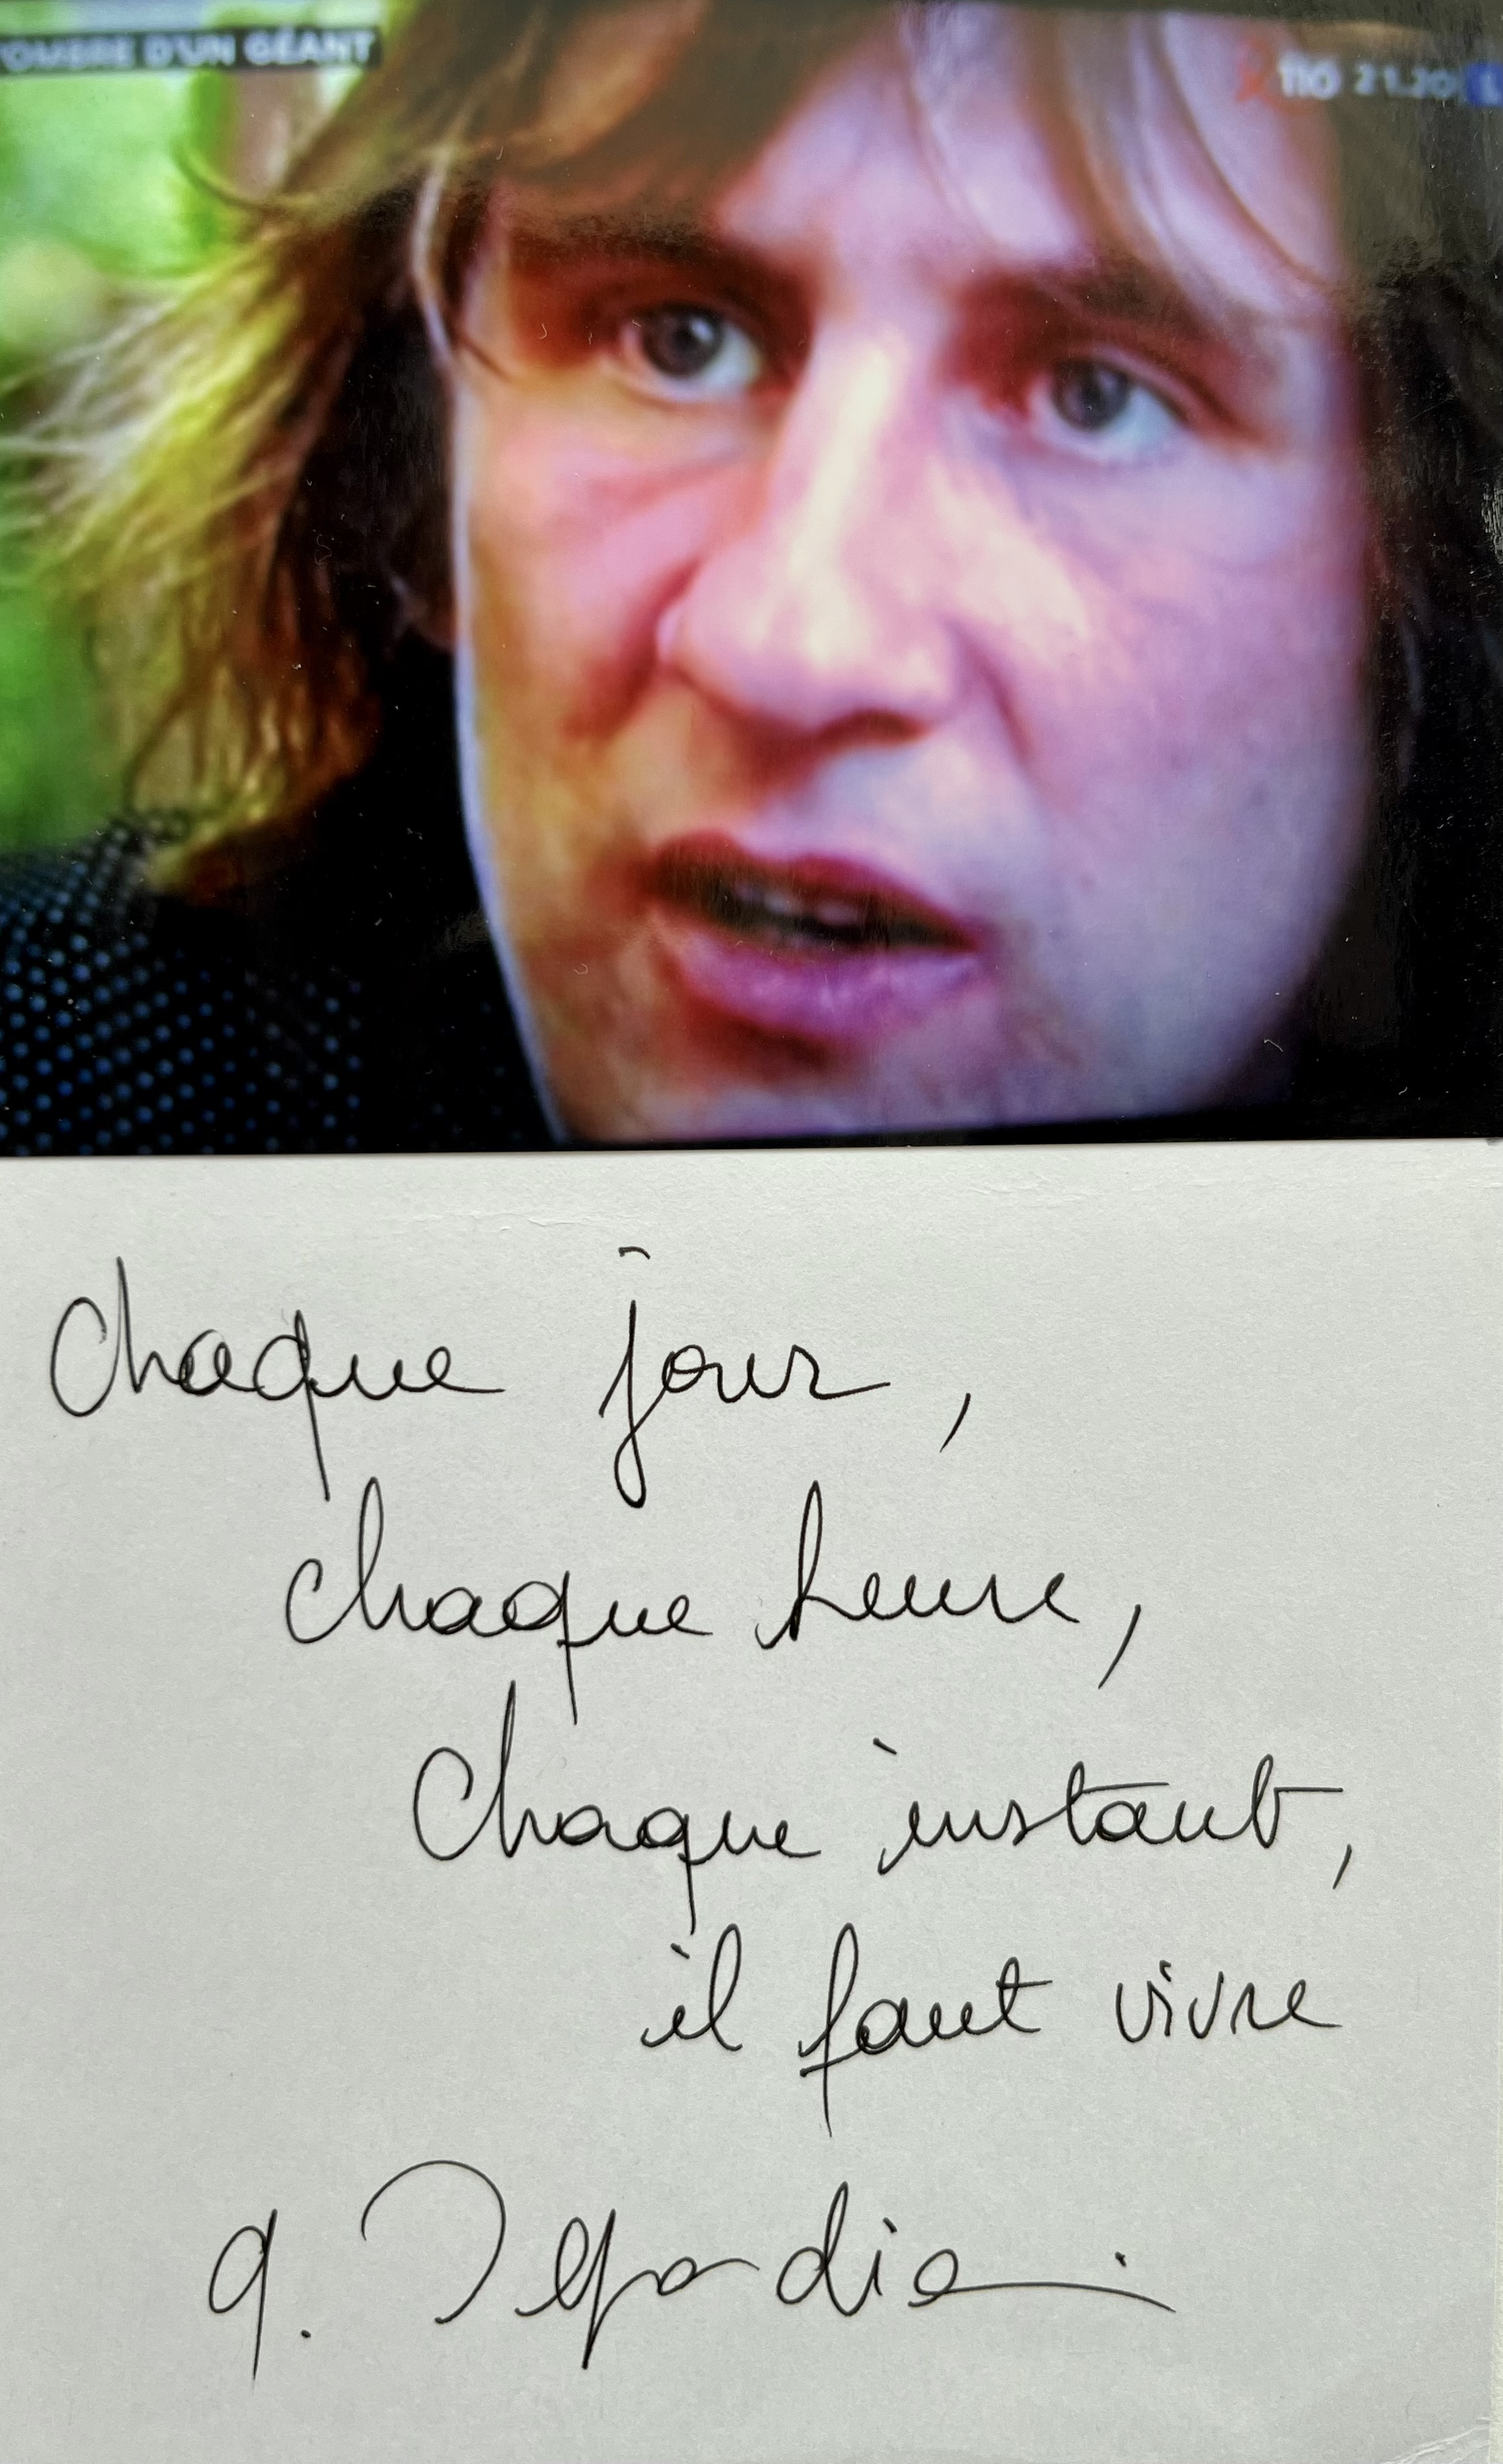 'OMBRE D'UN GÉANT
110 21.20
Chaque jour,
chaque heure,
Chaque instant,
il faut vivre
G. Depardie